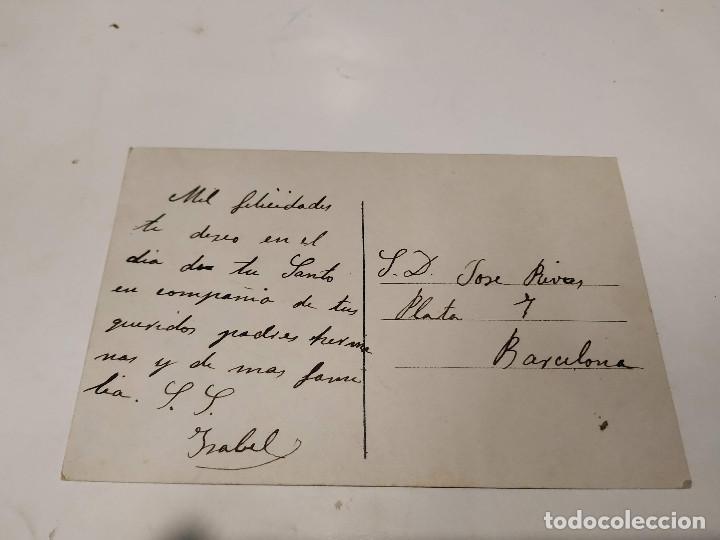 Mil felicidades
te deseo en el
dia de tu Santo
en compañia de tus
queridos padres herma
nas y de mas fami
lia. S. S.
Isabel
S. D. Jose Rivas
Plata 7
Barcelona
todocoleccion